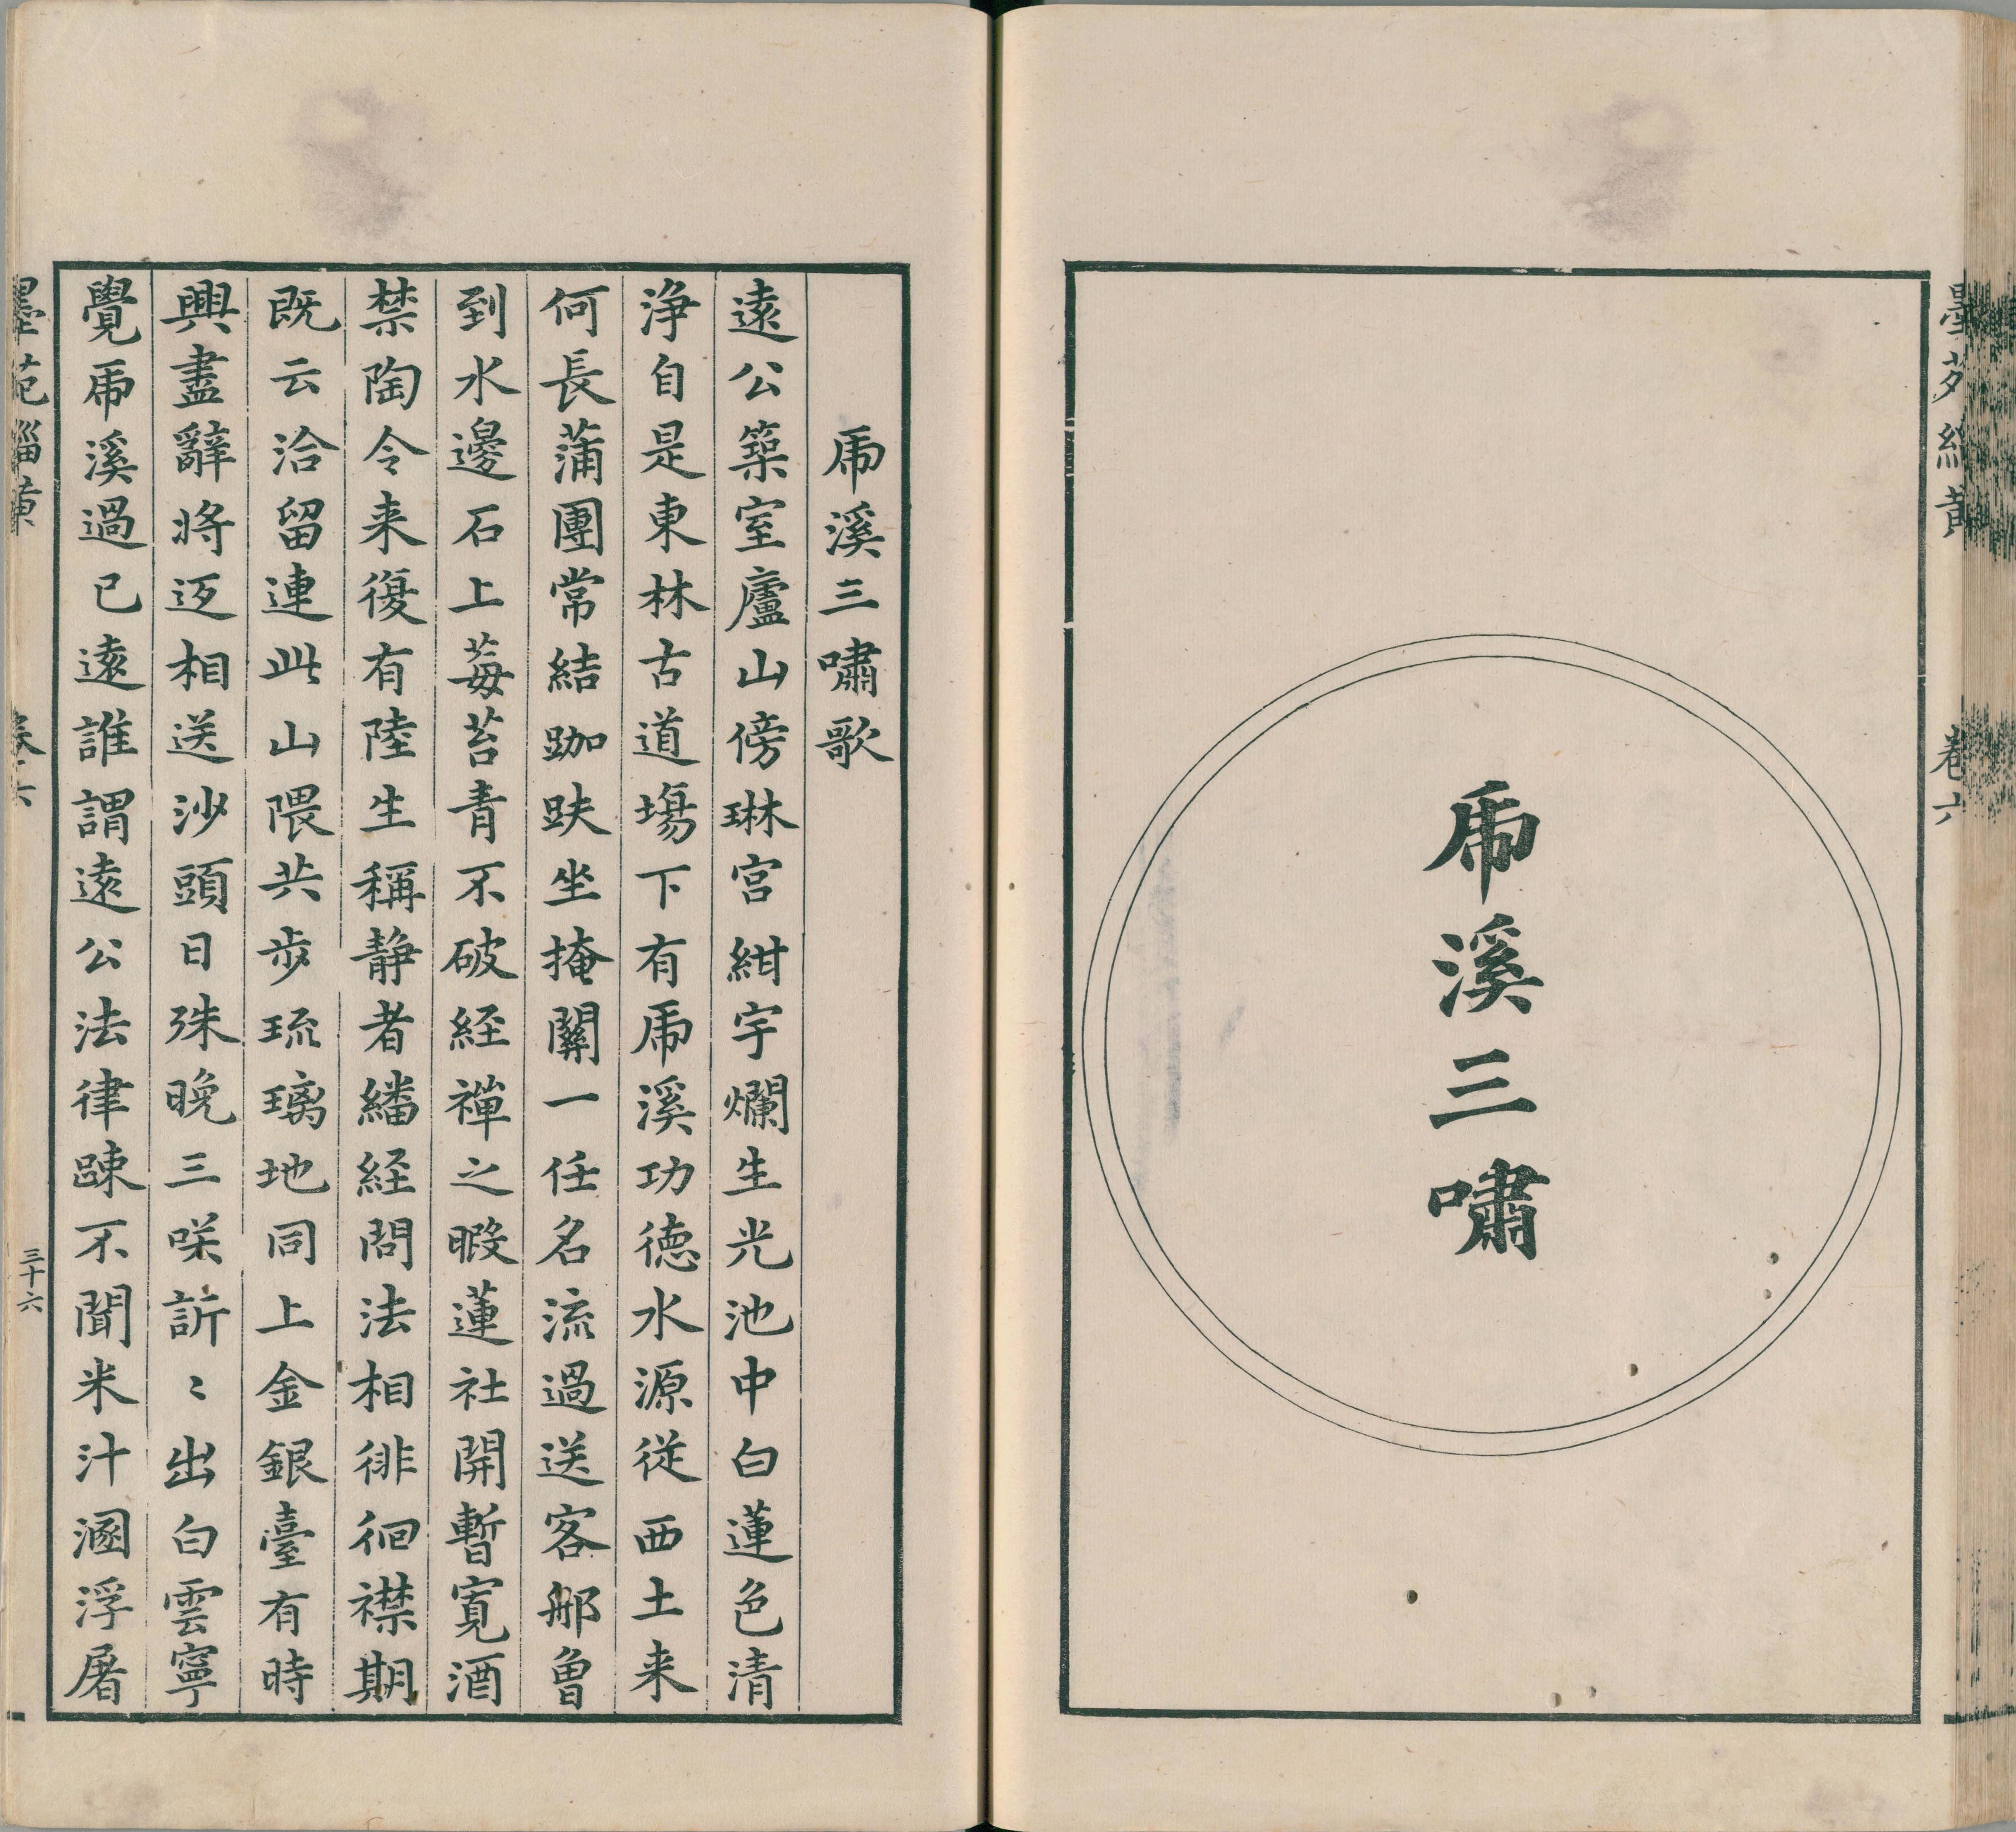 墨苑緇黄
卷六
虎溪三嘯
虎溪三嘯歌
遠公築室廬山傍琳宫紺宇爛生光池中白蓮色清
浄自是東林古道場下有虎溪功德水源從西土来
何長蒲團常結跏趺坐掩關一任名流過送客那曾
到水邊石上莓苔青不破経禪之暇蓮社開暫寬酒
禁陶令来復有陸生稱静者繙経問法相徘徊襟期
既云洽留連此山隈共步琉璃地同上金銀臺有時
興盡辭将返相送沙頭日殊晚三咲訢〻出白雲寧
覺虎溪過已遠誰謂遠公法律踈不聞米汁溷浮屠
墨苑緇黄
卷六
三十六